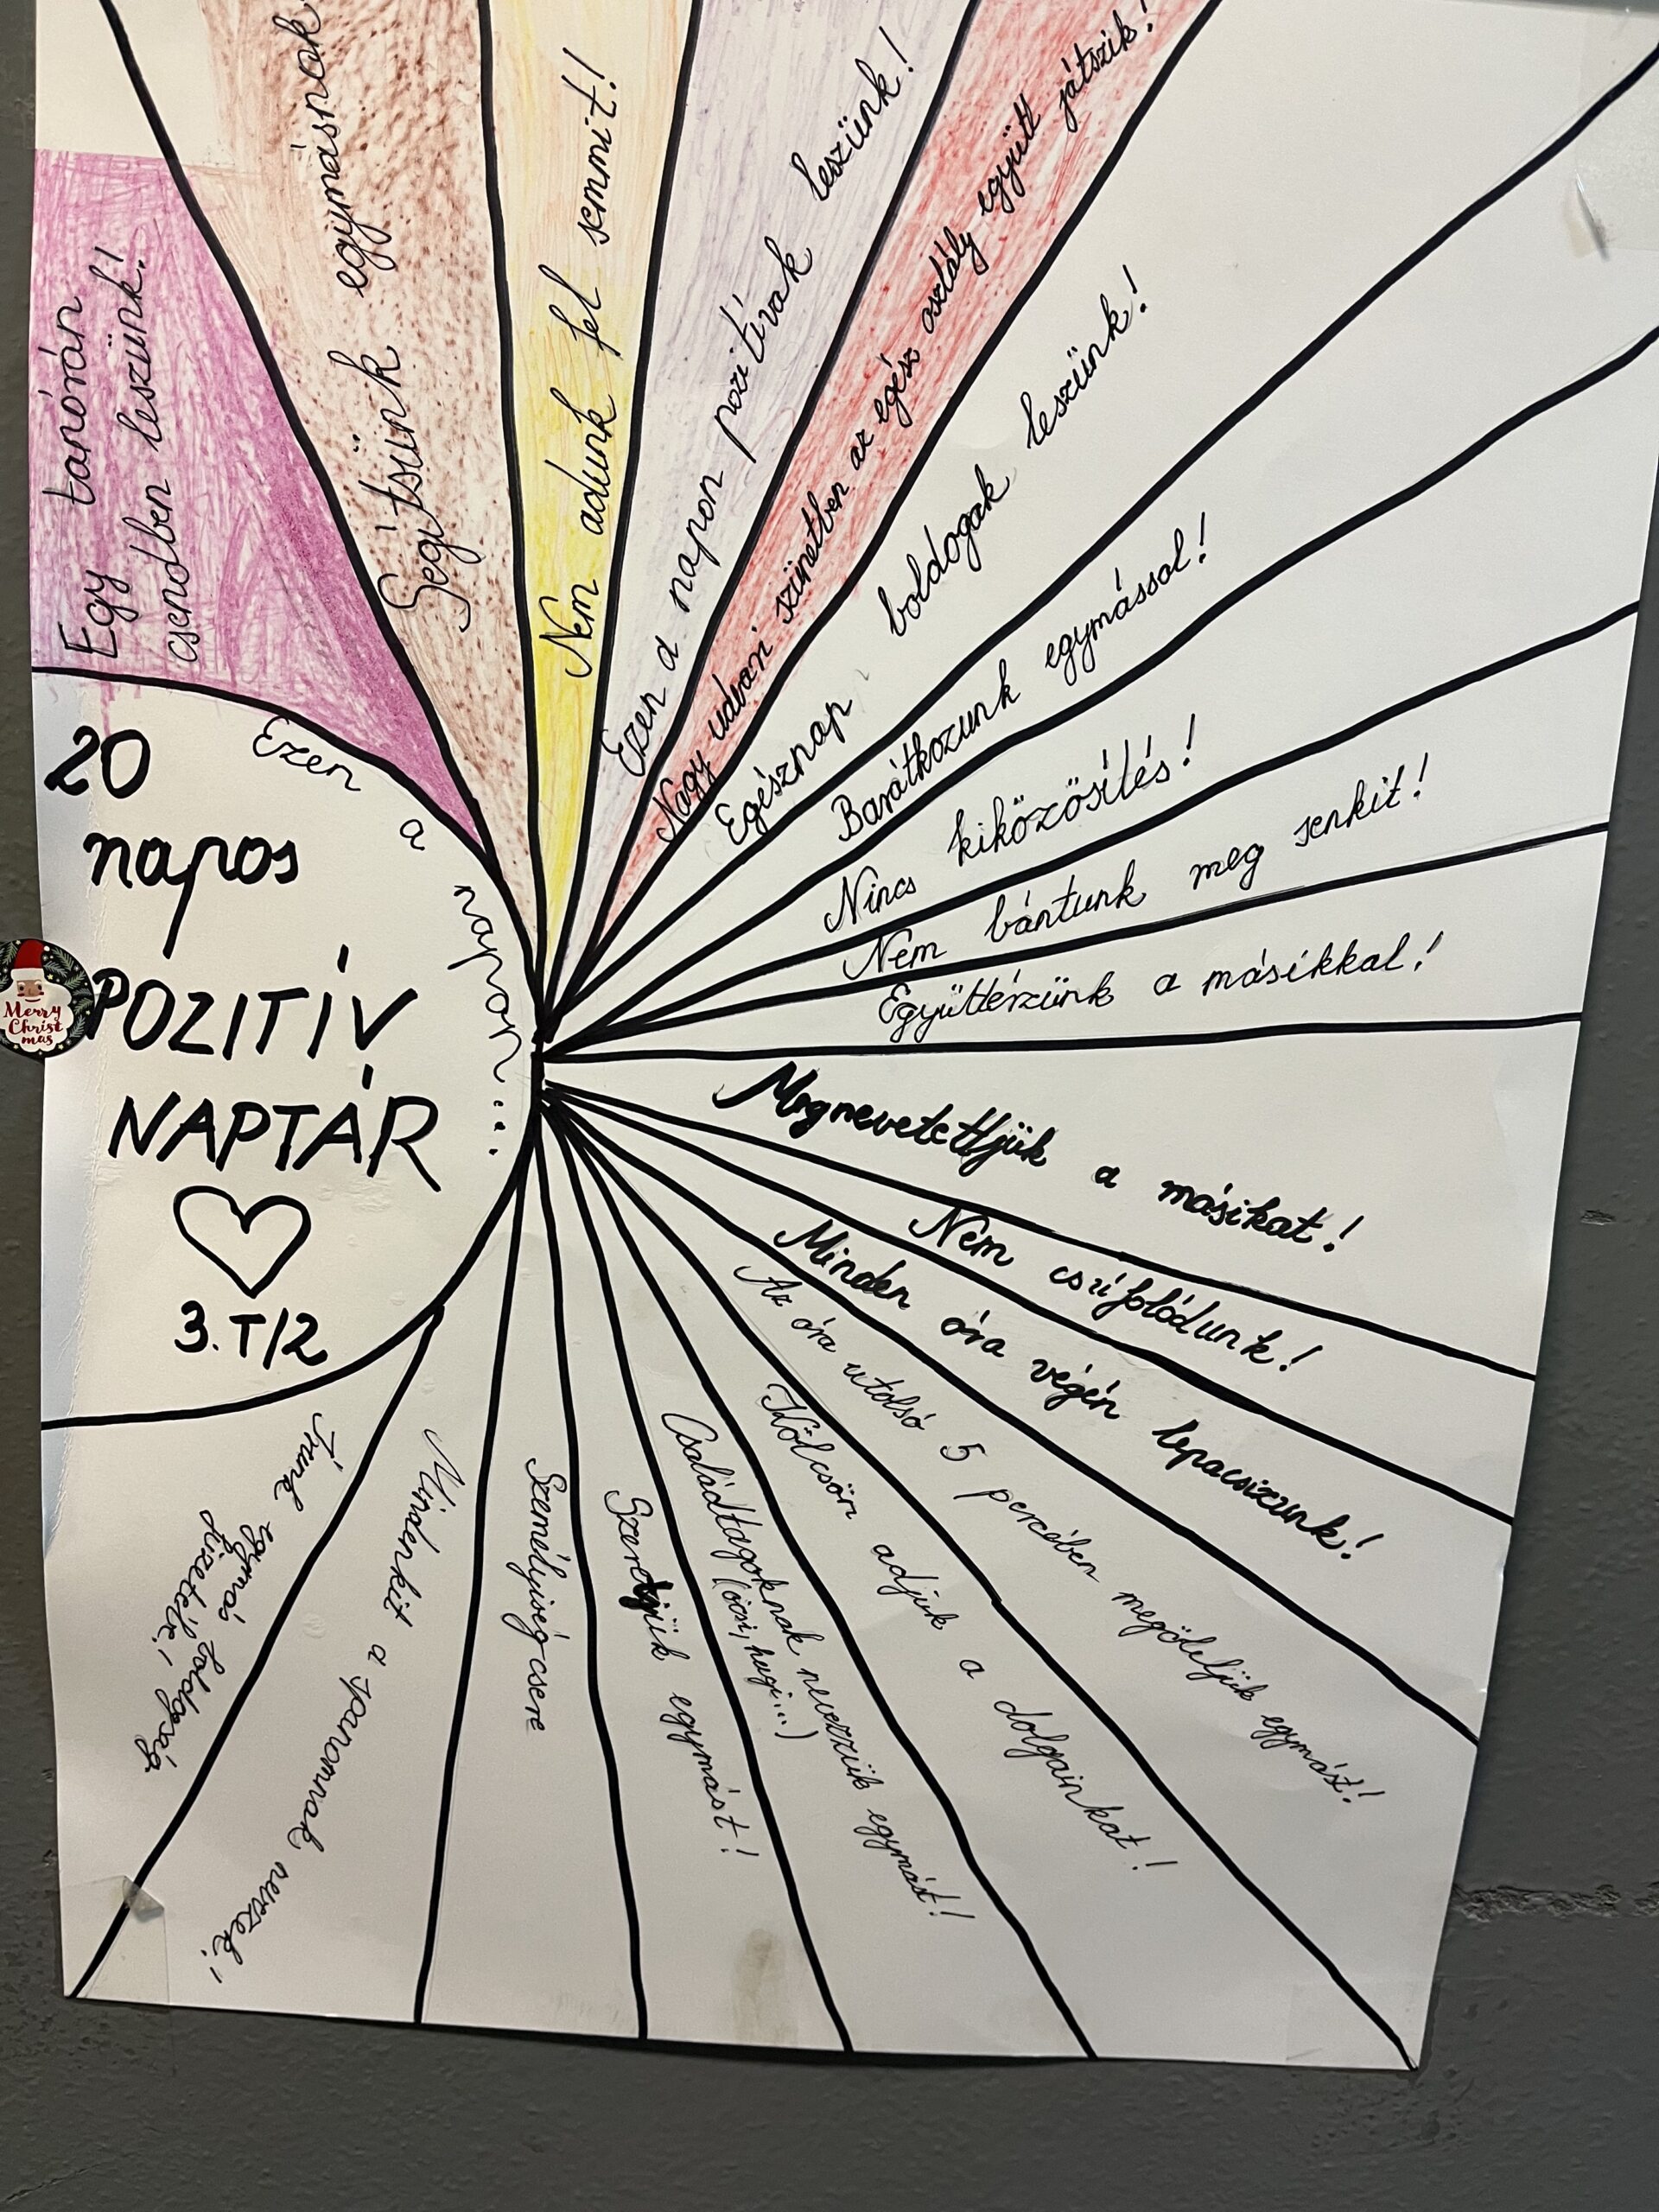 20
napos
POZITÍV
NAPTÁR
3.T/2
Ezen a napon...
Merry
Christ
mas
Egy tanórán
csendben leszünk!
Segítsünk egymásnak
Nem adunk fel semmit!
Ezen a napon pozitívak leszünk!
Nagy udvari szünetben az egész osztály együtt játszik!
Egésznap boldogak leszünk!
Barátkozunk egymással!
Nincs kiközösítés!
Nem bántunk meg senkit!
Együttérzünk a másikkal!
Megnevetettjük a másikat!
Nem csúfolódunk!
Minden óra végén lepacsizunk!
Az óra utolsó 5 percében megöleljük egymást!
Kölcsön adjuk a dolgainkat!
Családtagoknak nevezzük egymást!
(öcsi, hugi...)
Szeretjük egymást!
Személyiségcsere
Mindenkit a spanomnak nevezek!
Írunk egymás boldogság
füzetébe!